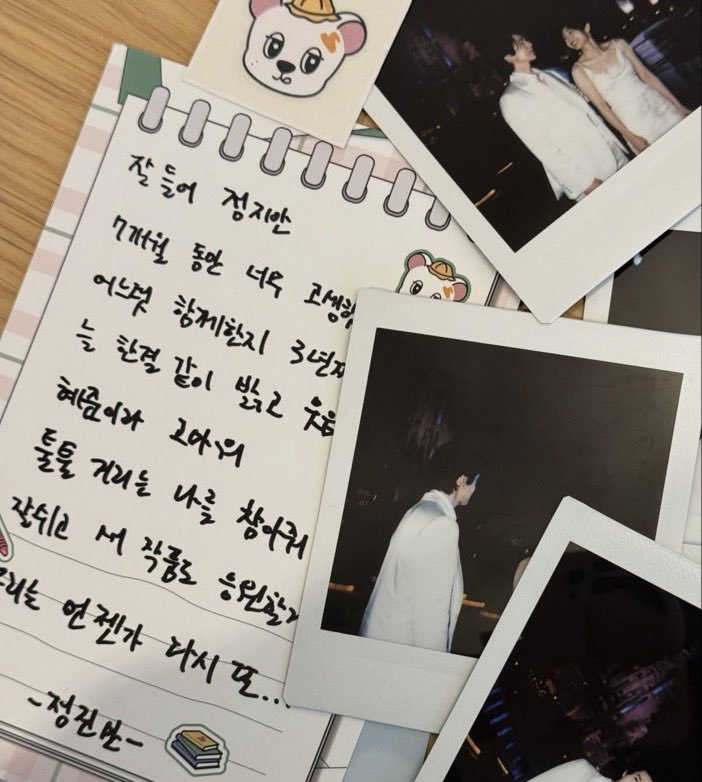 잘 들어 정지안
7개월 동안 너무 고생했
어느덧 함께한지 3년째
늘 한결 같이 밝고 웃음
헤픈이라 고마워
툴툴 거리는 나를 참아줘
잘쉬고 새 작품도 응원할게
우리는 언젠가 다시 또...
-정진만-